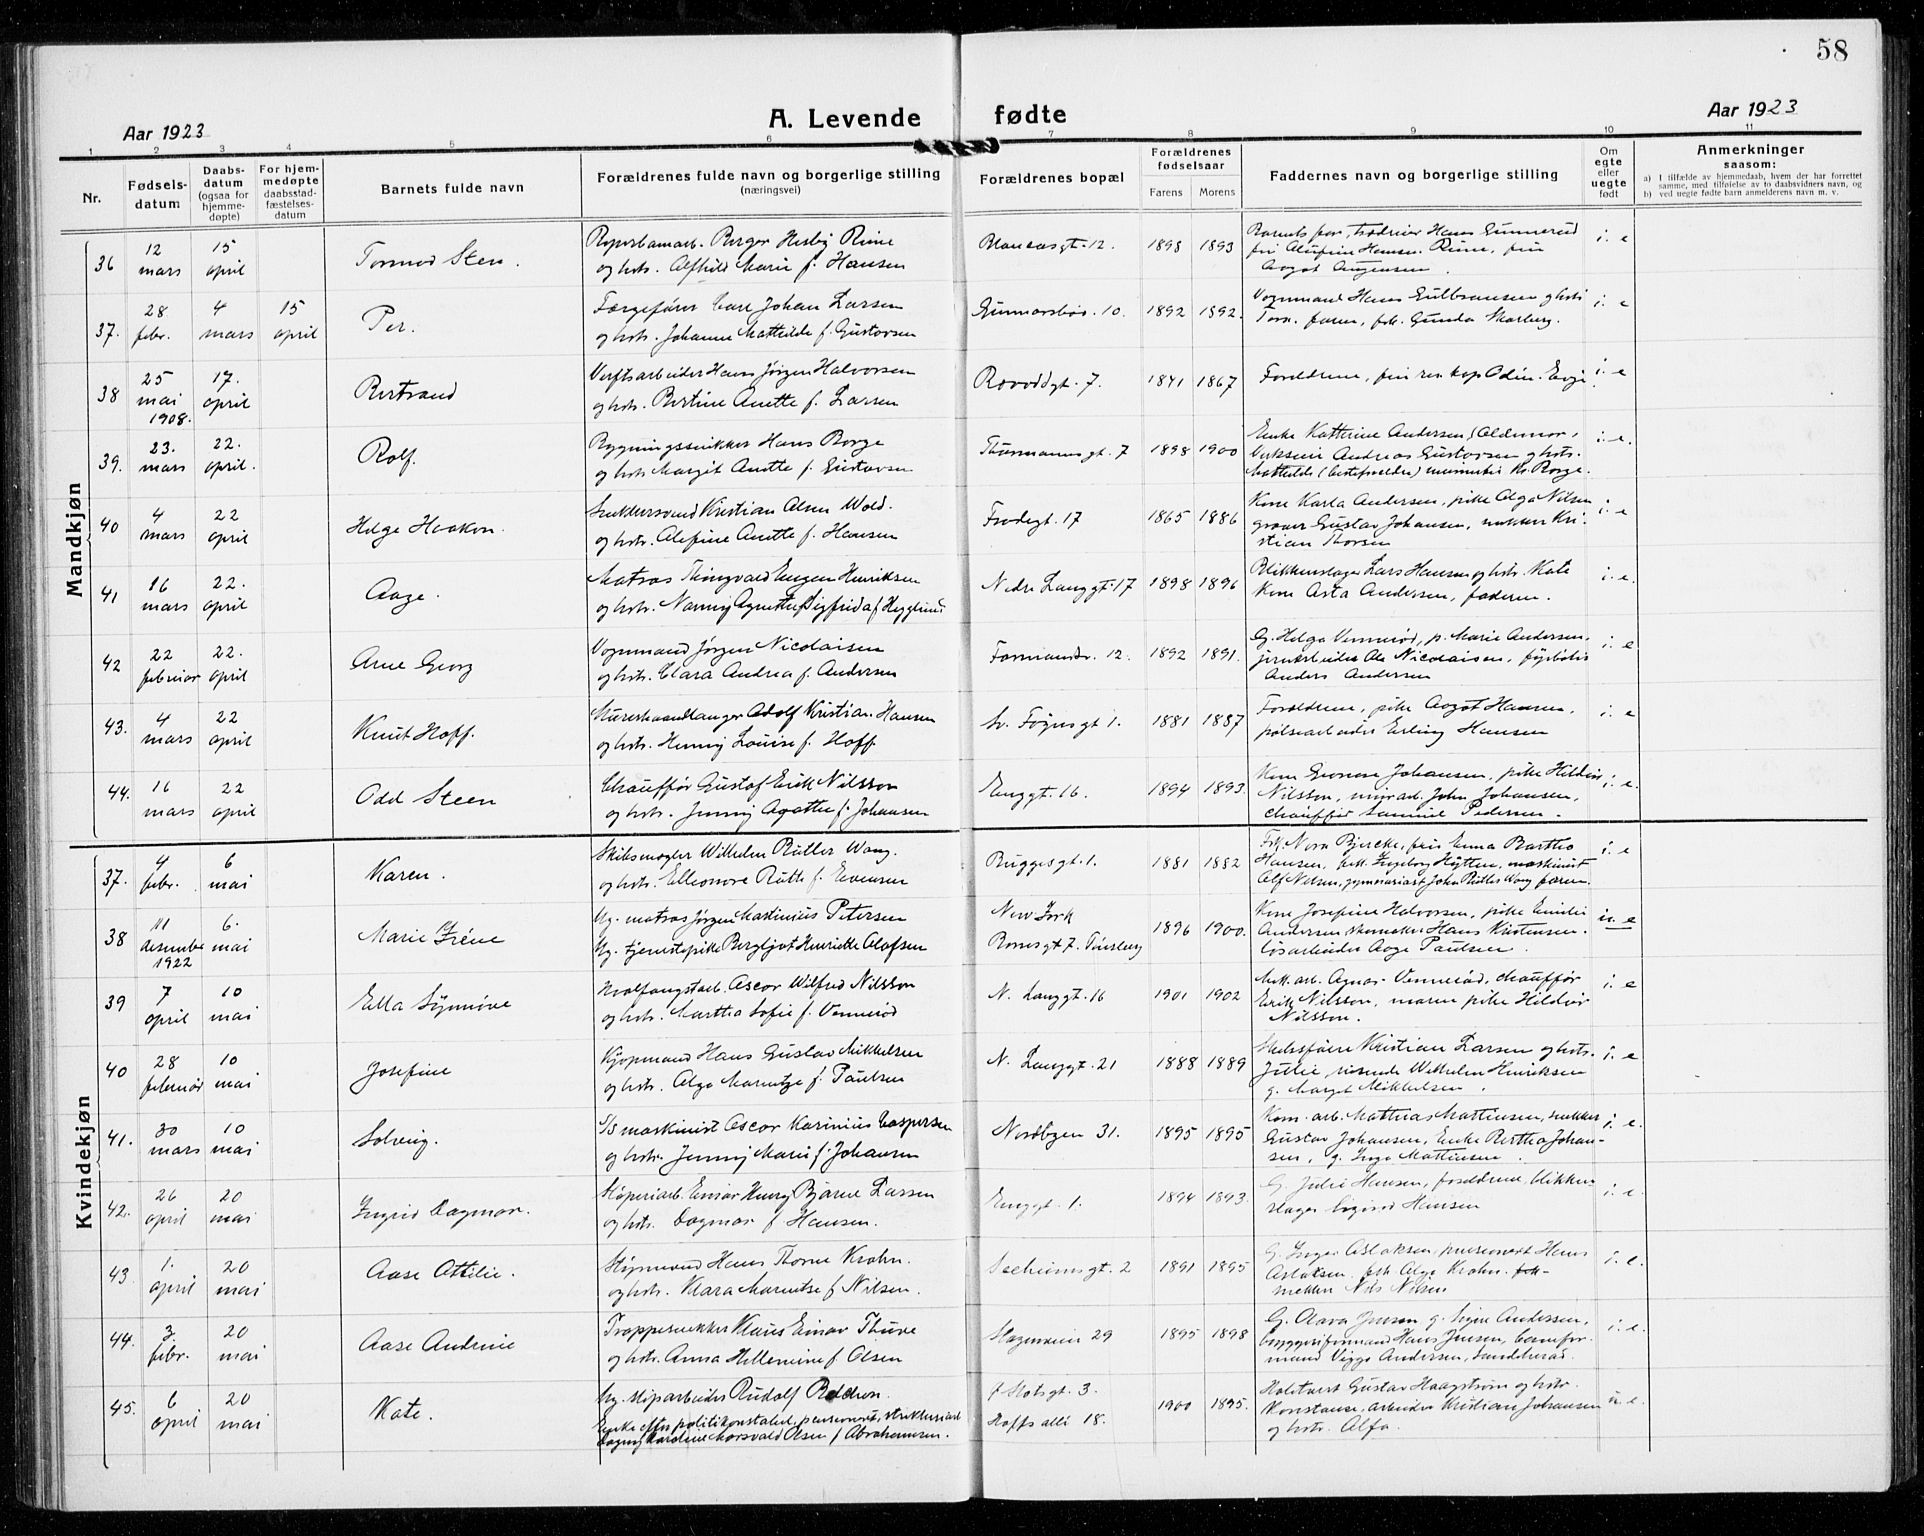 58
Aar 1923
A. Levende fødte
Aar 1923
1 2 3 4 5 6 7 8 9 10 11
Nr.
Fødsels-
datum
Daabs-
datum
(ogsaa for
hjemme-
døpte)
For hjem-
medøpte
daabsstad-
fæstelses-
datum
Barnets fulde navn
Forældrenes fulde navn og borgerlige stilling
(næringsvei)
Forældrenes bopæl
Forældrenes
fødselsaar
Farens Morens
Faddernes navn og borgerlig stilling
Om
egte
eller
uegte
født
Anmerkninger
saasom:
a) I tilfælde av hjemmedaab, hvem der har forrettet
samme, med tilføielse av to daabsvidners navn, og
b) ved uegte fødte barn anmelderens navn m. v.
Mandkjøn
36 12 mars 15 april
Tormod Steen.
Birger Hesby Rime
og hstr. Alfhild Marie f. Hansen
12. 1898 1893
Hans Gunnerød
Hansen Rime, fru
i. e
37. 28 febr. 4 mars 15 april
Per.
Færgefører Carl Johan Larsen
og hstr. Johanne Mathilde f. Gustavsen
Gunnarsbøs. 10. 1892 1892.
Vognmand Hans Gulbransen og hstr.
faren, frk. Gunda
i. e
38 25 mai 1908. 17. april
Bertrand
Verftsarbeider Hans Jørgen Halvorsen
og hstr. Bertine Anette f. Larsen
7. 1841 1867
Foreldrene, Odin
i. e
39. 23. mars 22. april.
Rolf.
Bygningssnikker Hans Borge
og hstr. Margit Anette f. Gustavsen
Thurmannsgt. 7 1898 1900
Enke Kathrine Andersen (Oldemor,
Andreas Gustavsen og hstr.
Mathilde (besteforeldre) Borge.
i. e.
40 4 mars 22 april
Helge Haakon.
Kristian Olsen Wold.
og hstr. Alefine Anette f. Hansen
Frodegt. 17 1865 1886
Kone Karla Andersen, pike Olga Nilsen
Gustav Johansen, snekker Kri-
stian Thorsen
i. e
41 16 mars 22. april
Aage.
Matros Thingvald Eugen Henriksen
og hstr. Nanny Agnethe Sigfrida f.
Nedre Langgt. 17 1898 1896
Blikkenslager Lars Hansen og hstr. Kate
Kone Asta Andersen, faderen.
i. e.
42 22 februar 22. april
Arne Georg
Vognmand Jørgen Nicolaisen
og hstr. Clara Andrea f. Andersen
Farmandv. 12. 1892 1891.
G. Helga Vennerød, p. Marie Andersen,
jernarbeider Ole Nicolaisen, fyrbøter
Anders Andersen
i. e
43. 4 mars 22 april
Knut Hoff.
Murerhaandlanger Adolf Kristian Hansen
og hstr. Henny Louise f. Hoff
Sv. Føynsgt 1. 1881 1887
Foreldrene, pike Aagot Hansen,
pølsearbeider Erling Hansen
i. e
44. 16 mars 22 april
Odd Steen
Chauffør Gustaf Erik Nilsson
og hstr. Jenny Agathe f. Johansen
Enggt. 16. 1894 1893.
Kone Johansen, pike Hildur
Nilsson, John Johansen,
chauffør Samuel Pedersen.
i. e.
Kvindekjøn
37. 4 febr. 6 mai
Karen.
Skibsmægler Wilhelm Rütter Wang.
og hstr. Elleonore Ruth f. Evensen
Bryggesgt. 1. 1881 1882
Frk. Nora Bjercke, frøi Anna Bartho
Hansen, frk. Ingeborg Hytten, maskinist
Alf Nilsen, gymnasiast John Rütter Wang faren.
i. e
38 11 desember 1922 6. mai
Marie Irène
Ug. matros Jørgen Martinius Petersen
Ug. tjenestepike Bergljot Henriette Olafsen
New York
7. Tønsberg 1896 1900.
Kone Josefine Halvorsen, pike Emilie
Andersen, Hans Kristensen.
løsarbeider Aage Paulsen.
u. e
39 7 april 10 mai
Ella Synnøve
Hvalfangstarb. Oscar Wilfred Nilsson
og hstr. Martha Sofie f. Vennerød
N. Langgt. 16 1901 1902
Vennerød, chauffør
Erik Nilsson, moren pike Hildur
Nilsson.
i. e
40 28 februar 10 mai
Josefine
Kjøpmand Hans Gustav Mikkelsen
og hstr. Olga Marentze f. Paulsen
N. Langgt. 21 1888 1889
Skibsfører Kristian Larsen og hstr.
Julie, reisende Wilhelm Henriksen
g. Margot Mikkelsen.
i. e
41. 30 mars 10 mai
Solveig.
S/S maskinist Oscar Karinius Caspersen
og hstr. Jenny Marie f. Johansen
Nordbyen 31. 1895 1895
Kom. arb. Mathias Martinsen, snekker
Gustav Johansen, Enke Bertha Johan-
sen, g. Inga Mathisen.
i. e.
42. 26 april 20 mai
Ingrid Dagmar.
Støperiarb. Einar Henry Bjarne Larsen
og hstr. Dagmar f. Hansen.
Enggt. 1. 1894 1893.
G. Julie Hansen, foreldrene, blikken-
slager Sigurd Hansen
i. e.
43. 1. april 20 mai
Aase Ottilie.
Styrmand Hans Thorne Krohn.
og hstr. Klara Marentse f. Nilsen.
Seeheimsgt. 2 1891 1895
G. Inger Aslaksen, pensionert Hans
Aslaksen, frk. Olga Krohn.
Nils Nilsen
i. e.
44. 3. febr. 20 mai
Aase Andrine
Trappesnekker Klaus Einar Thuve
og hstr. Anna Hellemine f. Olsen
Slagenveien 29 1895 1898
G. Clara Jensen g. Signe Andersen,
bryggeriformand Hans Jensen,
Viggo Andersen, Sandeherad.
i. e.
45. 6 april 20 mai
Kate.
Ug. støparbeider Rudolf
Enke efter politikonstabel,
Dagny Karoline Olsen f. Abrahamsen.
Slotsgt. 3.
Hoffs allé 18. 1900 1895.
Gustav Haagstrøm og hstr.
Konstance, arbeider Kristian Johansen
og hstr. Alfa.
u. e.